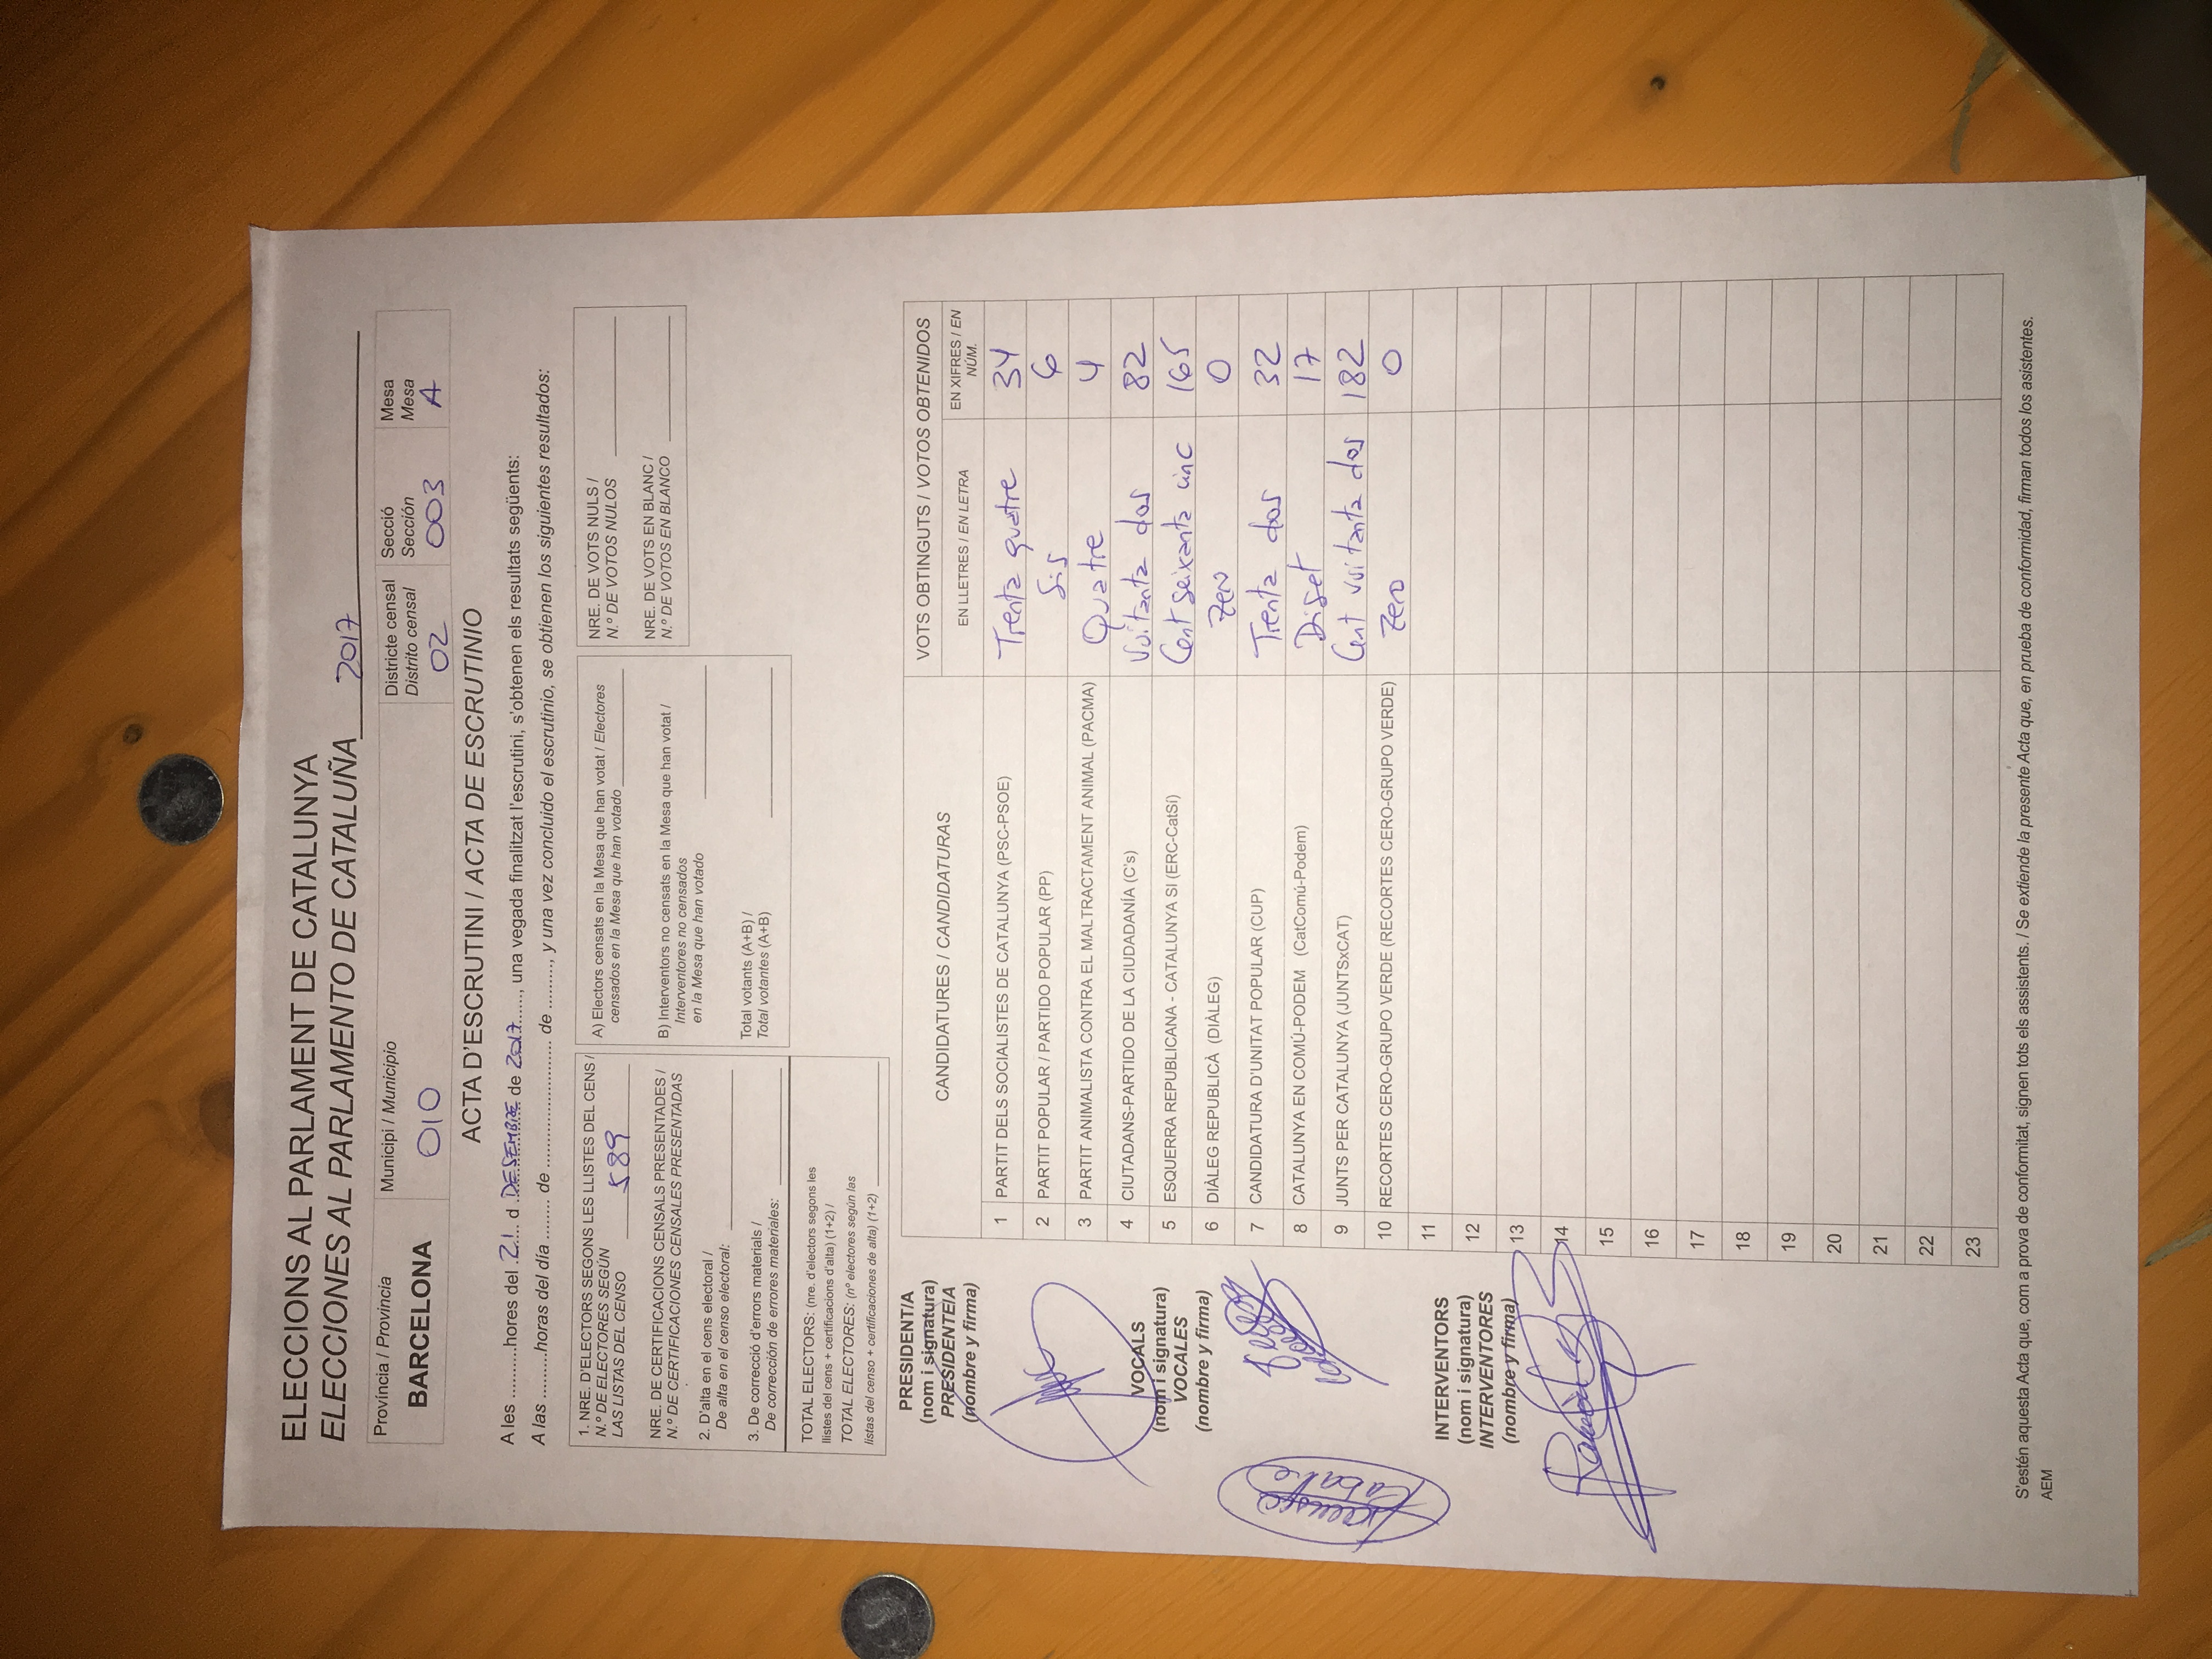 ELECCIONS AL PARLAMENT DE CATALUNYA
ELECCIONES AL PARLAMENTO DE CATALUÑA 2017
Província / Provincia
BARCELONA
Municipi / Municipio
010
Districte censal
Distrito censal
02
Secció
Sección
003
Mesa
Mesa
A
ACTA D'ESCRUTINI / ACTA DE ESCRUTINIO
A les ...........hores del .21.. d .DESEMBRE de 2017......, una vegada finalitzat l'escrutini, s'obtenen els resultats següents:
A las ..........horas del día ......... de .......................... de ........., y una vez concluido el escrutinio, se obtienen los siguientes resultados:
1. NRE. D'ELECTORS SEGONS LES LLISTES DEL CENS /
N.º DE ELECTORES SEGÚN
LAS LISTAS DEL CENSO 589
NRE. DE CERTIFICACIONS CENSALS PRESENTADES /
N.º DE CERTIFICACIONES CENSALES PRESENTADAS
2. D'alta en el cens electoral /
De alta en el censo electoral:
3. De correcció d'errors materials /
De corrección de errores materiales:
TOTAL ELECTORS: (nre. d'electors segons les
llistes del cens + certificacions d'alta) (1+2) /
TOTAL ELECTORES: (nº electores según las
listas del censo + certificaciones de alta) (1+2)
A) Electors censats en la Mesa que han votat / Electores
censados en la Mesa que han votado
B) Interventors no censats en la Mesa que han votat /
Interventores no censados
en la Mesa que han votado
Total votants (A+B) /
Total votantes (A+B)
NRE. DE VOTS NULS /
N.º DE VOTOS NULOS
NRE. DE VOTS EN BLANC /
N.º DE VOTOS EN BLANCO
PRESIDENT/A
(nom i signatura)
PRESIDENTE/A
(nombre y firma)
VOCALS
(nom i signatura)
VOCALES
(nombre y firma)
INTERVENTORS
(nom i signatura)
INTERVENTORES
(nombre y firma)
CANDIDATURES / CANDIDATURAS
VOTS OBTINGUTS / VOTOS OBTENIDOS
EN LLETRES / EN LETRA
EN XIFRES / EN NÚM.
1 PARTIT DELS SOCIALISTES DE CATALUNYA (PSC-PSOE) Trenta quatre 34
2 PARTIT POPULAR / PARTIDO POPULAR (PP) Sis 6
3 PARTIT ANIMALISTA CONTRA EL MALTRACTAMENT ANIMAL (PACMA) Quatre 4
4 CIUTADANS-PARTIDO DE LA CIUDADANÍA (C's) Vuitanta dos 82
5 ESQUERRA REPUBLICANA - CATALUNYA SI (ERC-CatSí) Cent seixanta cinc 165
6 DIÀLEG REPUBLICÀ (DIÀLEG) Zero 0
7 CANDIDATURA D'UNITAT POPULAR (CUP) Trenta dos 32
8 CATALUNYA EN COMÚ-PODEM (CatComú-Podem) Diset 17
9 JUNTS PER CATALUNYA (JUNTSxCAT) Cent vuitanta dos 182
10 RECORTES CERO-GRUPO VERDE (RECORTES CERO-GRUPO VERDE) Zero 0
11
12
13
14
15
16
17
18
19
20
21
22
23
S'estén aquesta Acta que, com a prova de conformitat, signen tots els assistents. / Se extiende la presente Acta que, en prueba de conformidad, firman todos los asistentes.
AEM